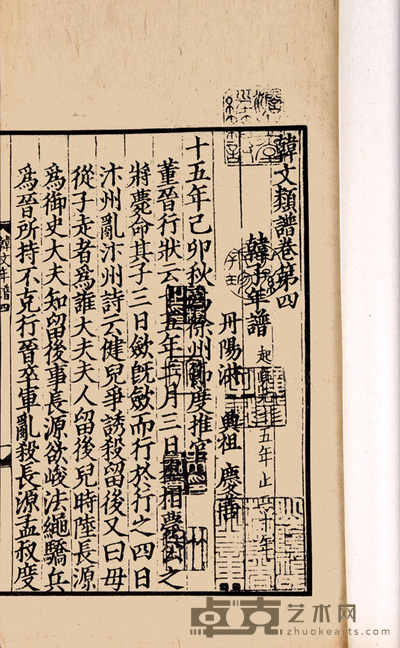 韓文類譜卷第四
韓子年譜 起貞元十五年止
丹陽洪 興祖 慶善
十五年己卯秋 徐州節度推官
董晉行狀云 五年二月三日 相薨公之
將薨命其子三日斂既斂而行於行之四日
汴州亂汴州詩云健兒爭誘殺留後又曰母
從子走者為誰大夫夫人留後兒時陸長源
為御史大夫知留後事長源欲峻法繩驕兵
為晉所持不克行晉卒軍亂殺長源孟叔度
韓文年譜四
卓克艺术网
www.zhuokearts.com